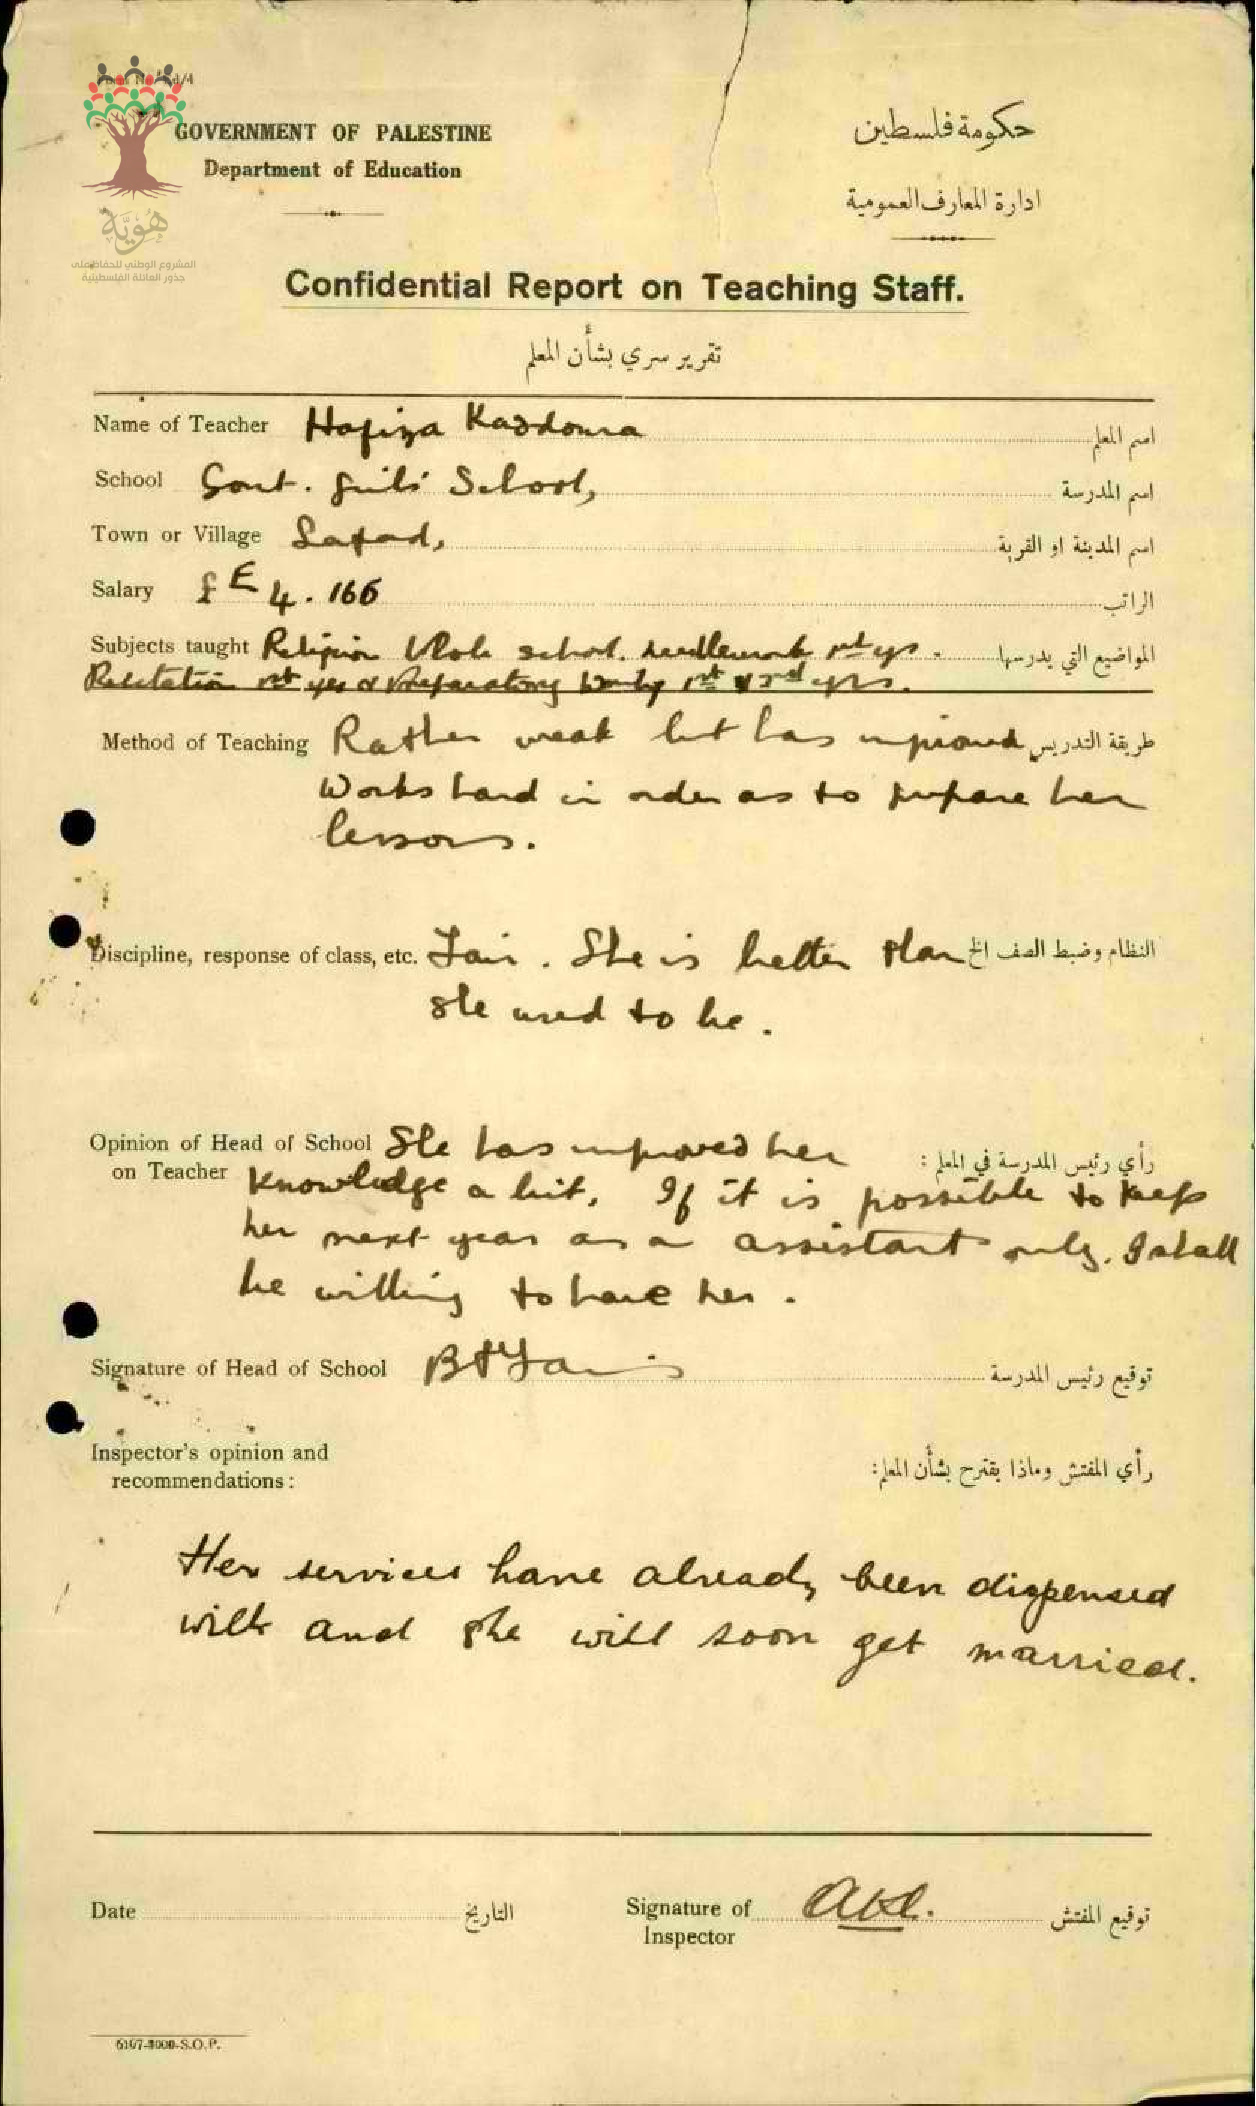 GOVERNMENT OF PALESTINE
Department of Education
حكومة فلسطين
ادارة المعارف العمومية
هُوِيَّة
المشروع الوطني للحفاظ على
جذور العائلة الفلسطينية
Confidential Report on Teaching Staff.
تقرير سري بشأن المعلم
Name of Teacher Hafiza Kaddoura اسم المعلم
School Govt. Girls' School, اسم المدرسة
Town or Village Safad, اسم المدينة او القرية
Salary £E 4.166 الراتب
Subjects taught Religion Whole school. needlework 1st yr. المواضيع التي يدرسها
Recitation 1st yr & Preparatory 1st & 2nd yrs.
Method of Teaching Rather weak but has improved طريقة التدريس
Works hard in order as to prepare her
lessons.
Discipline, response of class, etc. Fair. She is better than النظام وضبط الصف الخ
she used to be.
Opinion of Head of School She has improved her رأي رئيس المدرسة في المعلم :
on Teacher Knowledge a bit. If it is possible to keep
her next year as a assistant only. I shall
be willing to have her.
Signature of Head of School توقيع رئيس المدرسة
Inspector's opinion and رأي المفتش وماذا يقترح بشأن المعلم:
recommendations :
Her services have already been dispensed
with and she will soon get married.
Date التاريخ
Signature of توقيع المفتش
Inspector
6107-3000-S.O.P.